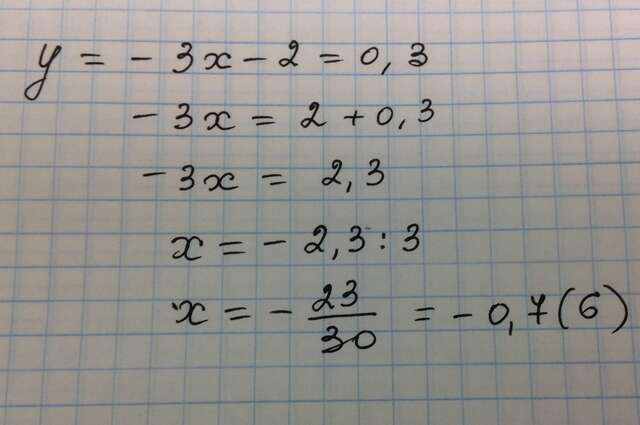 y = - 3x - 2 = 0,3
- 3x = 2 + 0,3
- 3x = 2,3
x = - 2,3 : 3
x = - 23/30 = - 0,7(6)